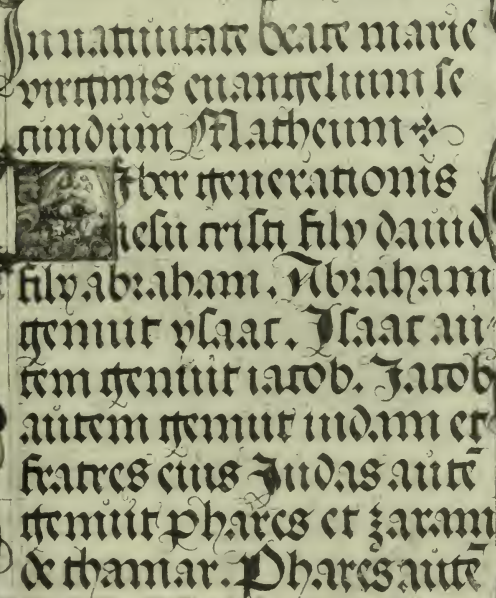 In natiuitate beate marie
virginis euangelium se
cundum Matheum
Liber generationis
iesu cristi filij dauid
filij abraham. Abraham
genuit ysaac. Isaac au
tem genuit iacob. Jacob
autem genuit iudam et
fratres eius Judas autē
genuit phares et zaram
de thamar. Phares autē